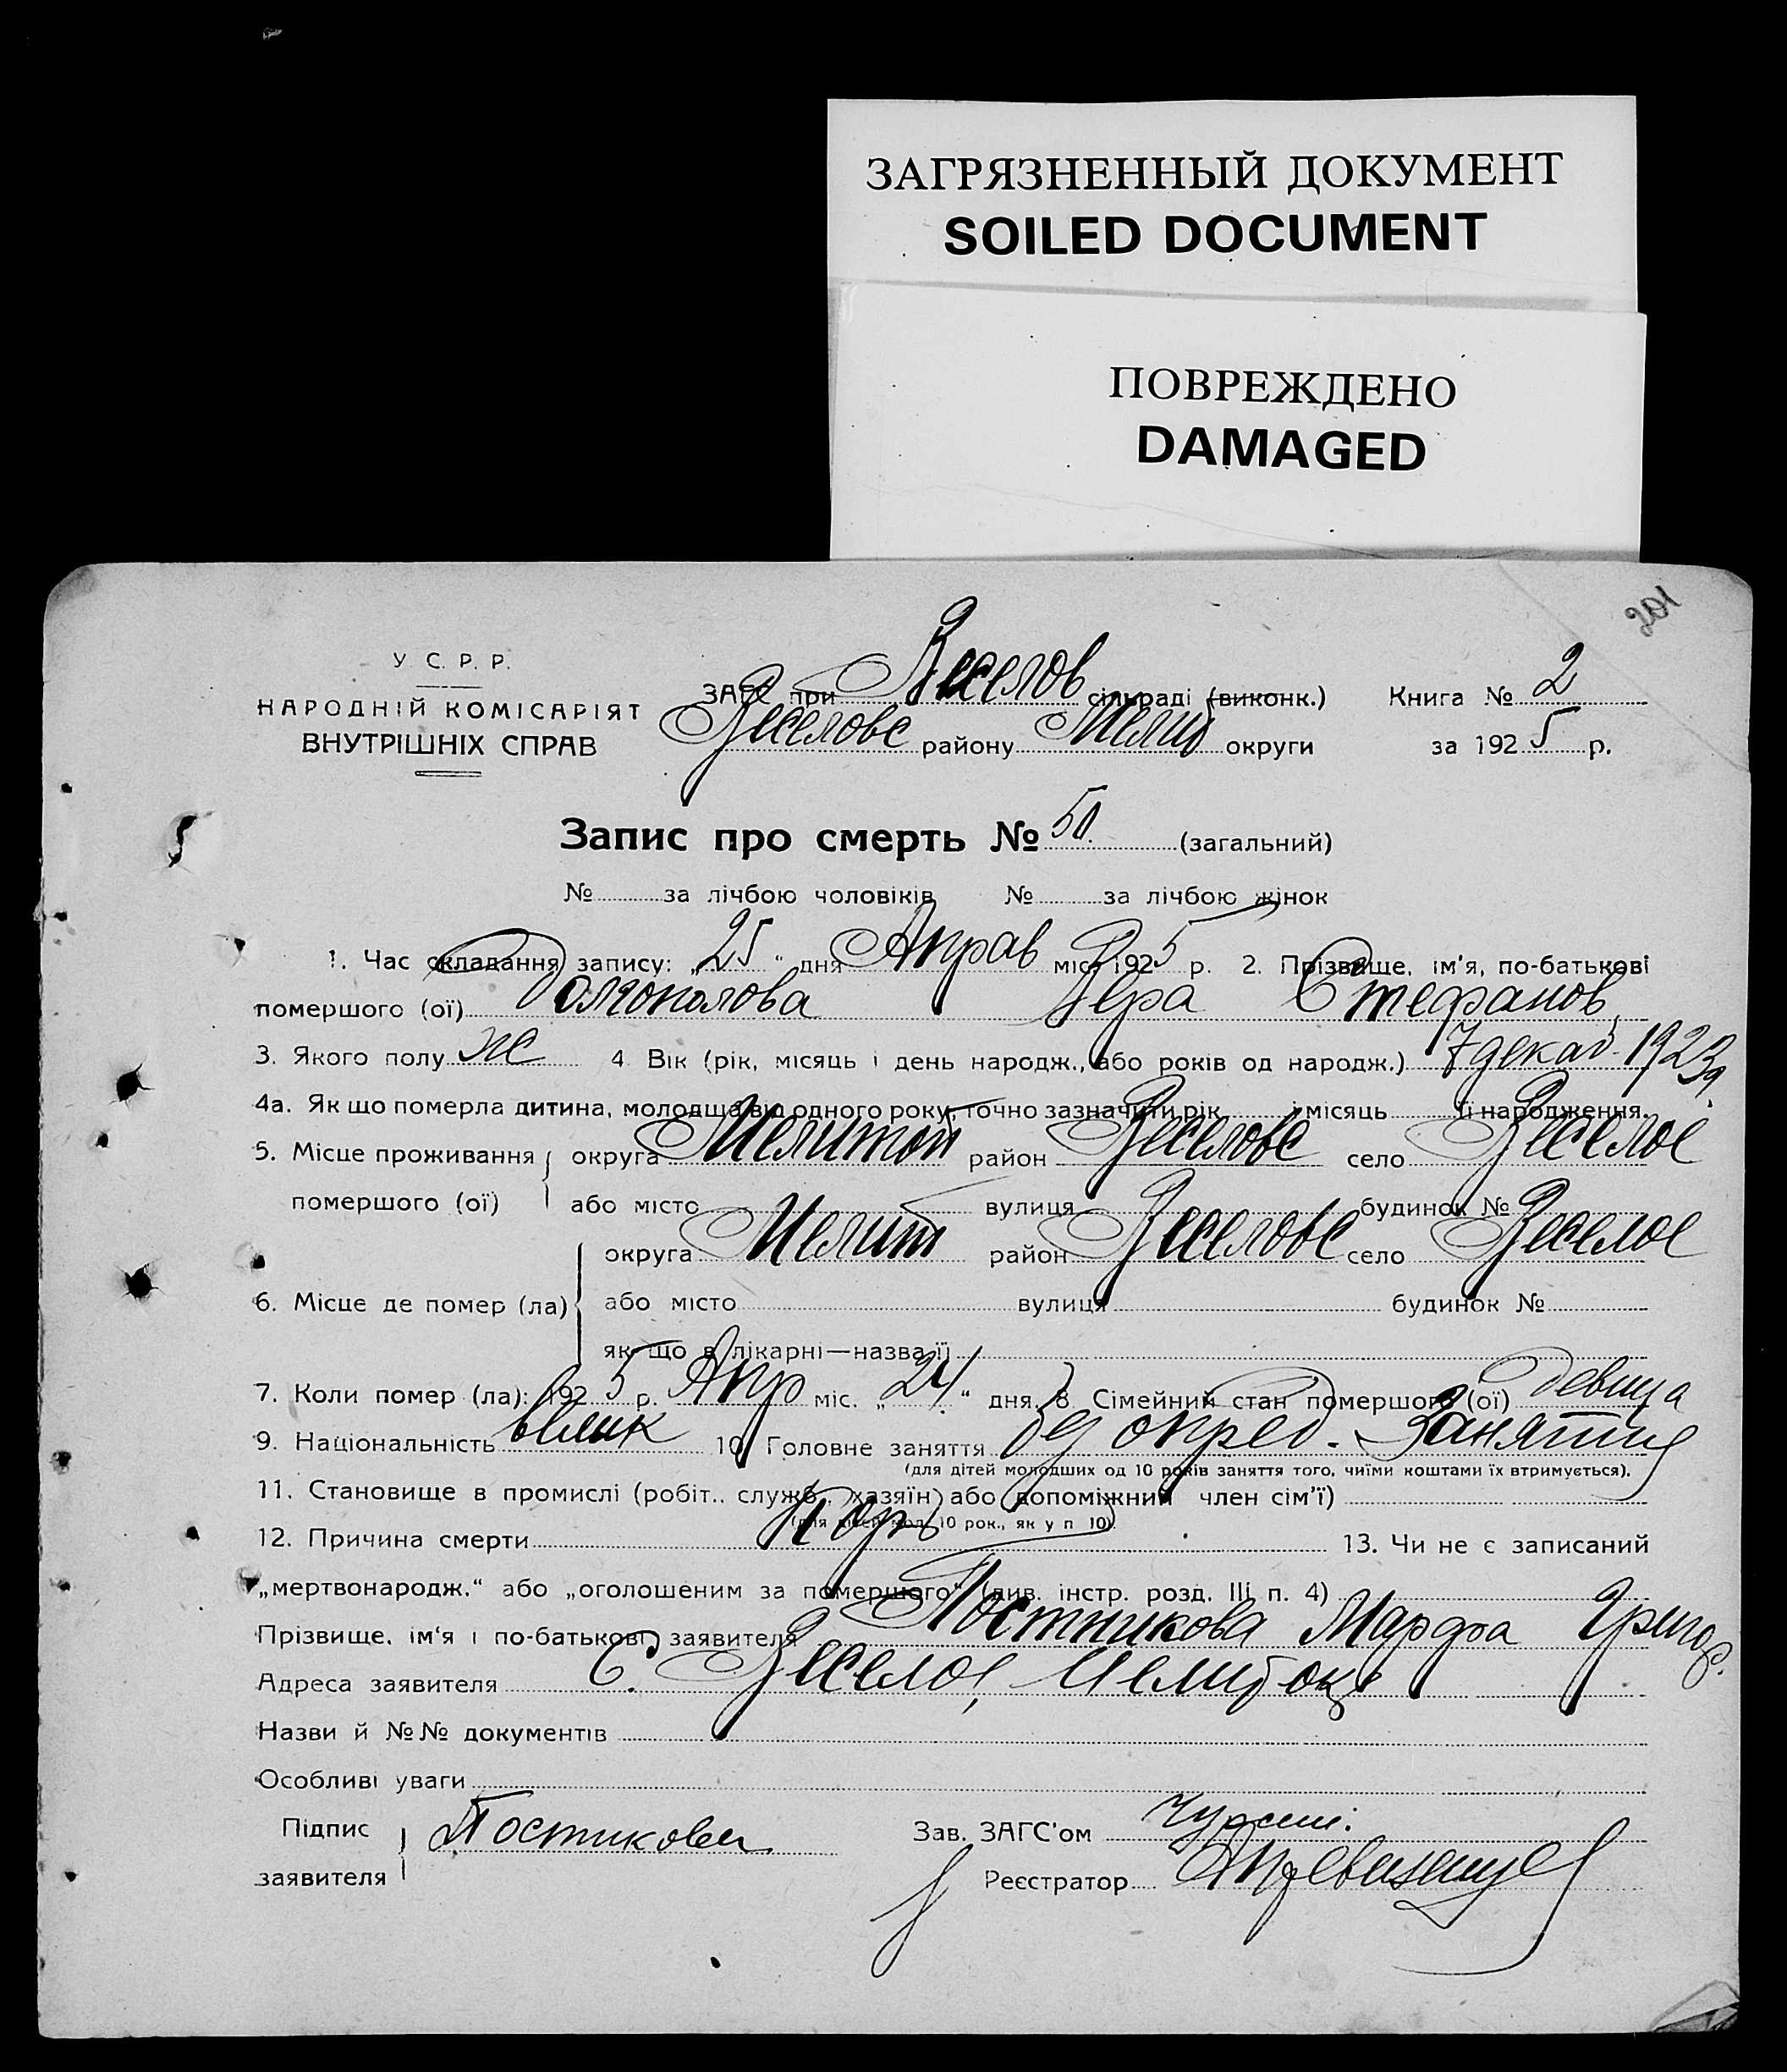 ЗАГРЯЗНЕННЫЙ ДОКУМЕНТ
SOILED DOCUMENT
ПОВРЕЖДЕНО
DAMAGED
201
У С. Р. Р.
НАРОДНІЙ КОМІСАРІЯТ
ВНУТРІШНІХ СПРАВ
ЗАГС при Веселов сільраді (виконк.) Книга № 2
Веселовс району Мелит округи за 1925 р.
Запис про смерть № 50. (загальний)
№ за лічбою чоловіків № за лічбою жінок
1. Час складання запису: „25“ дня міс. 1925 р. 2. Прізвище, ім'я, по-батькові
помершого (ої) Долгополова Вера Стефанов
3. Якого полу ж 4. Вік (рік, місяць і день народж., або років од народж.) 7 декаб. 1923
4а. Як що померла дитина, молодша від одного року, точно зазначити рік і місяць її народження.
5. Місце проживання округа Мелитоп район Веселовс село Веселое
помершого (ої) або місто вулиця будинок №
округа Мелит район Веселовс село Веселое
6. Місце де помер (ла) або місто вулиця будинок №
як що в лікарні—назва її
7. Коли помер (ла): 1925 р. Апр міс. „24“ дня. 8. Сімейний стан помершого (ої) девица
9. Національність 10. Головне заняття без опред. занятия
(для дітей молодших од 10 років заняття того, чиїми коштами їх втримується).
11. Становище в промислі (робіт., служб., хазяїн) або допоміжний член сім'ї)
(для дітей мол. 10 рок., як у п 10).
12. Причина смерти Корь 13. Чи не є записаний
„мертвонародж.“ або „оголошеним за помершого“ (див. інстр. розд. III п. 4)
Прізвище, ім'я і по-батькові заявителя Постникова Марфа Григор.
Адреса заявителя С. Веселое, Мелит окр
Назви й №№ документів
Особливі уваги
Підпис Постникова Зав. ЗАГС'ом
заявителя Реєстратор